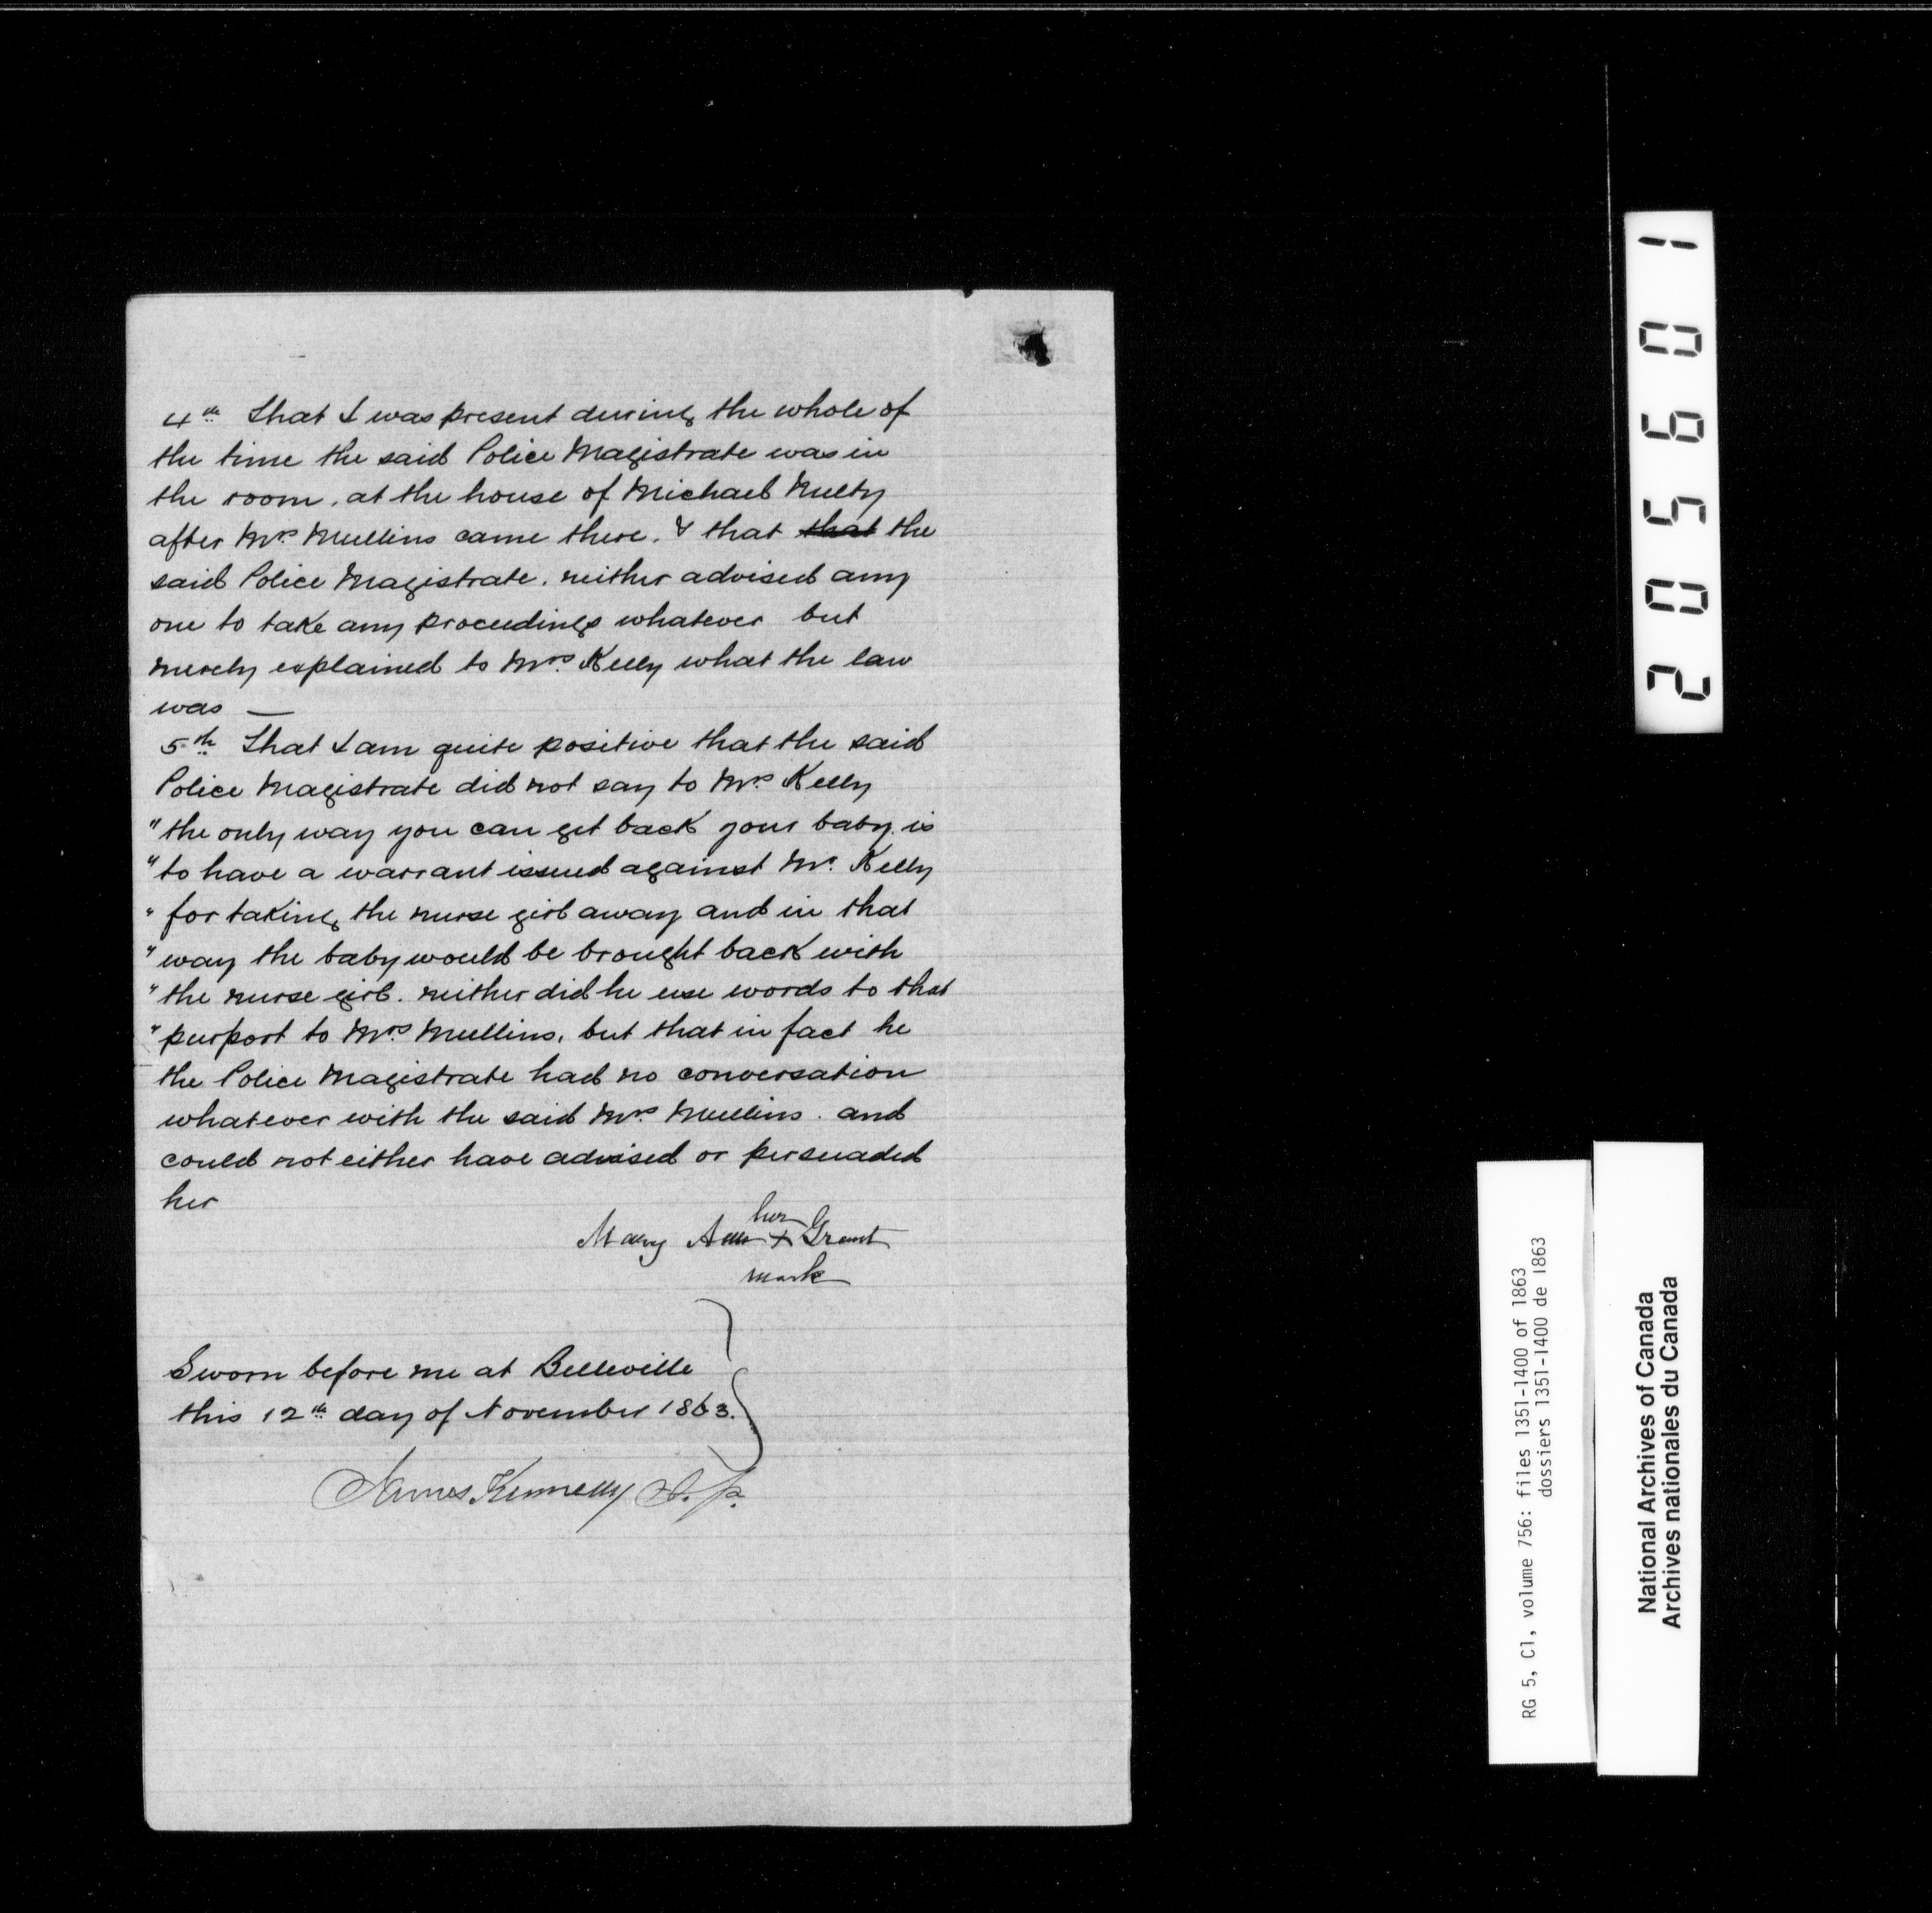 4th That I was present during the whole of
the time the said Police Magistrate was in
the room, at the house of Michael Nulty
after Mrs. Mullins came there. & that that the
said Police Magistrate. neither advised any
one to take any proceedings whatever but
merely explained to Mrs. Kelly what the law
was —
5th That I am quite positive that the said
Police Magistrate did not say to Mrs Kelly
"the only way you can get back your baby is
"to have a warrant issued against Mr. Kelly
"for taking the nurse girl away and in that
"way the baby would be brought back with
"the nurse girl. neither did he use words to that
"purport to Mrs. Mullins, but that in fact he
the Police Magistrate had no conversation
whatever with the said Mrs. Mullins. and
could not either have advised or persuaded
her
her
Mary Ann + Grant
mark
Sworn before me at Belleville
this 12th day of November 1863.
James Kennelly J.P.
205601
RG 5, C1, volume 756: files 1351-1400 of 1863
dossiers 1351-1400 de 1863
National Archives of Canada
Archives nationales du Canada